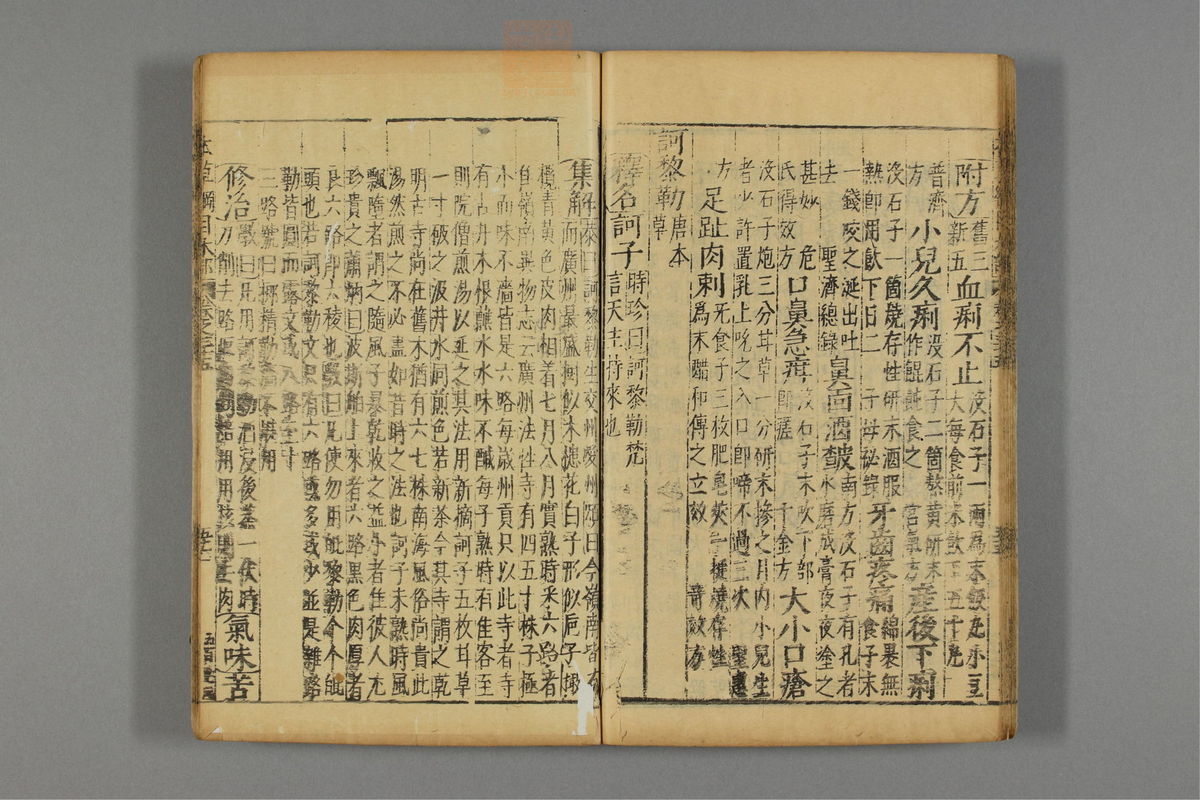 附方舊三新五血痢不止沒石子一兩爲末飯丸小豆大每食前米飲下五十丸
普濟方小兒久痢沒石子二箇熬黃研末作餛飩食之宮氣方產後下痢
沒石子一箇燒存性研末酒服熱卽用飲下日二子母秘錄牙齒疼痛綿裹無食子末
一錢咬之涎出吐去聖濟總錄鼻面酒皶南方沒石子有孔者水磨成膏夜夜塗之
甚妙危氏得效方口鼻急疳沒石子末吹下部卽瘥千金方大小口瘡
沒石子炮三分甘草一分研末摻之月內小兒生者少許置乳上吮之入口卽啼不過三次聖惠
方足趾肉刺無食子三枚肥皂莢一挺燒存性爲末醋和傅之立效奇效方
訶黎勒唐本草
釋名訶子時珍曰訶黎勒梵言天主持來也
集解恭曰訶黎勒生交州愛州頌曰今嶺南皆有而廣州最盛樹似木槵花白子形似巵子橄
欖青黃色皮肉相着七月八月實熟時采六路者
自嶺南異物志云廣州法性寺有四五十株子極
小而味不濇皆是六路每歲州貢只以此寺者寺
有古井木根蘸水水味不鹹每子熟時有佳客至
則院僧煎湯以延之其法用新摘訶子五枚甘草
一寸破之汲井水同煎色若新茶今其寺謂之乾
明古寺尚在舊木猶有六七株南海風俗尚貴此
湯然煎之不必盡如昔時之法也訶子未熟時風
飄墮者謂之隨風子暴乾收之益小者佳彼人尤
珍貴之蕭炳曰波斯舶上來者六路黑色肉厚者
良六路卽六稜也斅曰凡使勿用毗黎勒個個毗
頭也若訶黎勒文只有六路或多或少並是雜路
勒皆圓而露文或八路至十
三路號曰榔精勒濇不堪用
修治斅曰凡用訶黎勒酒浸後蒸一伏時刀削去路取肉剉焙用用核則去肉氣味苦